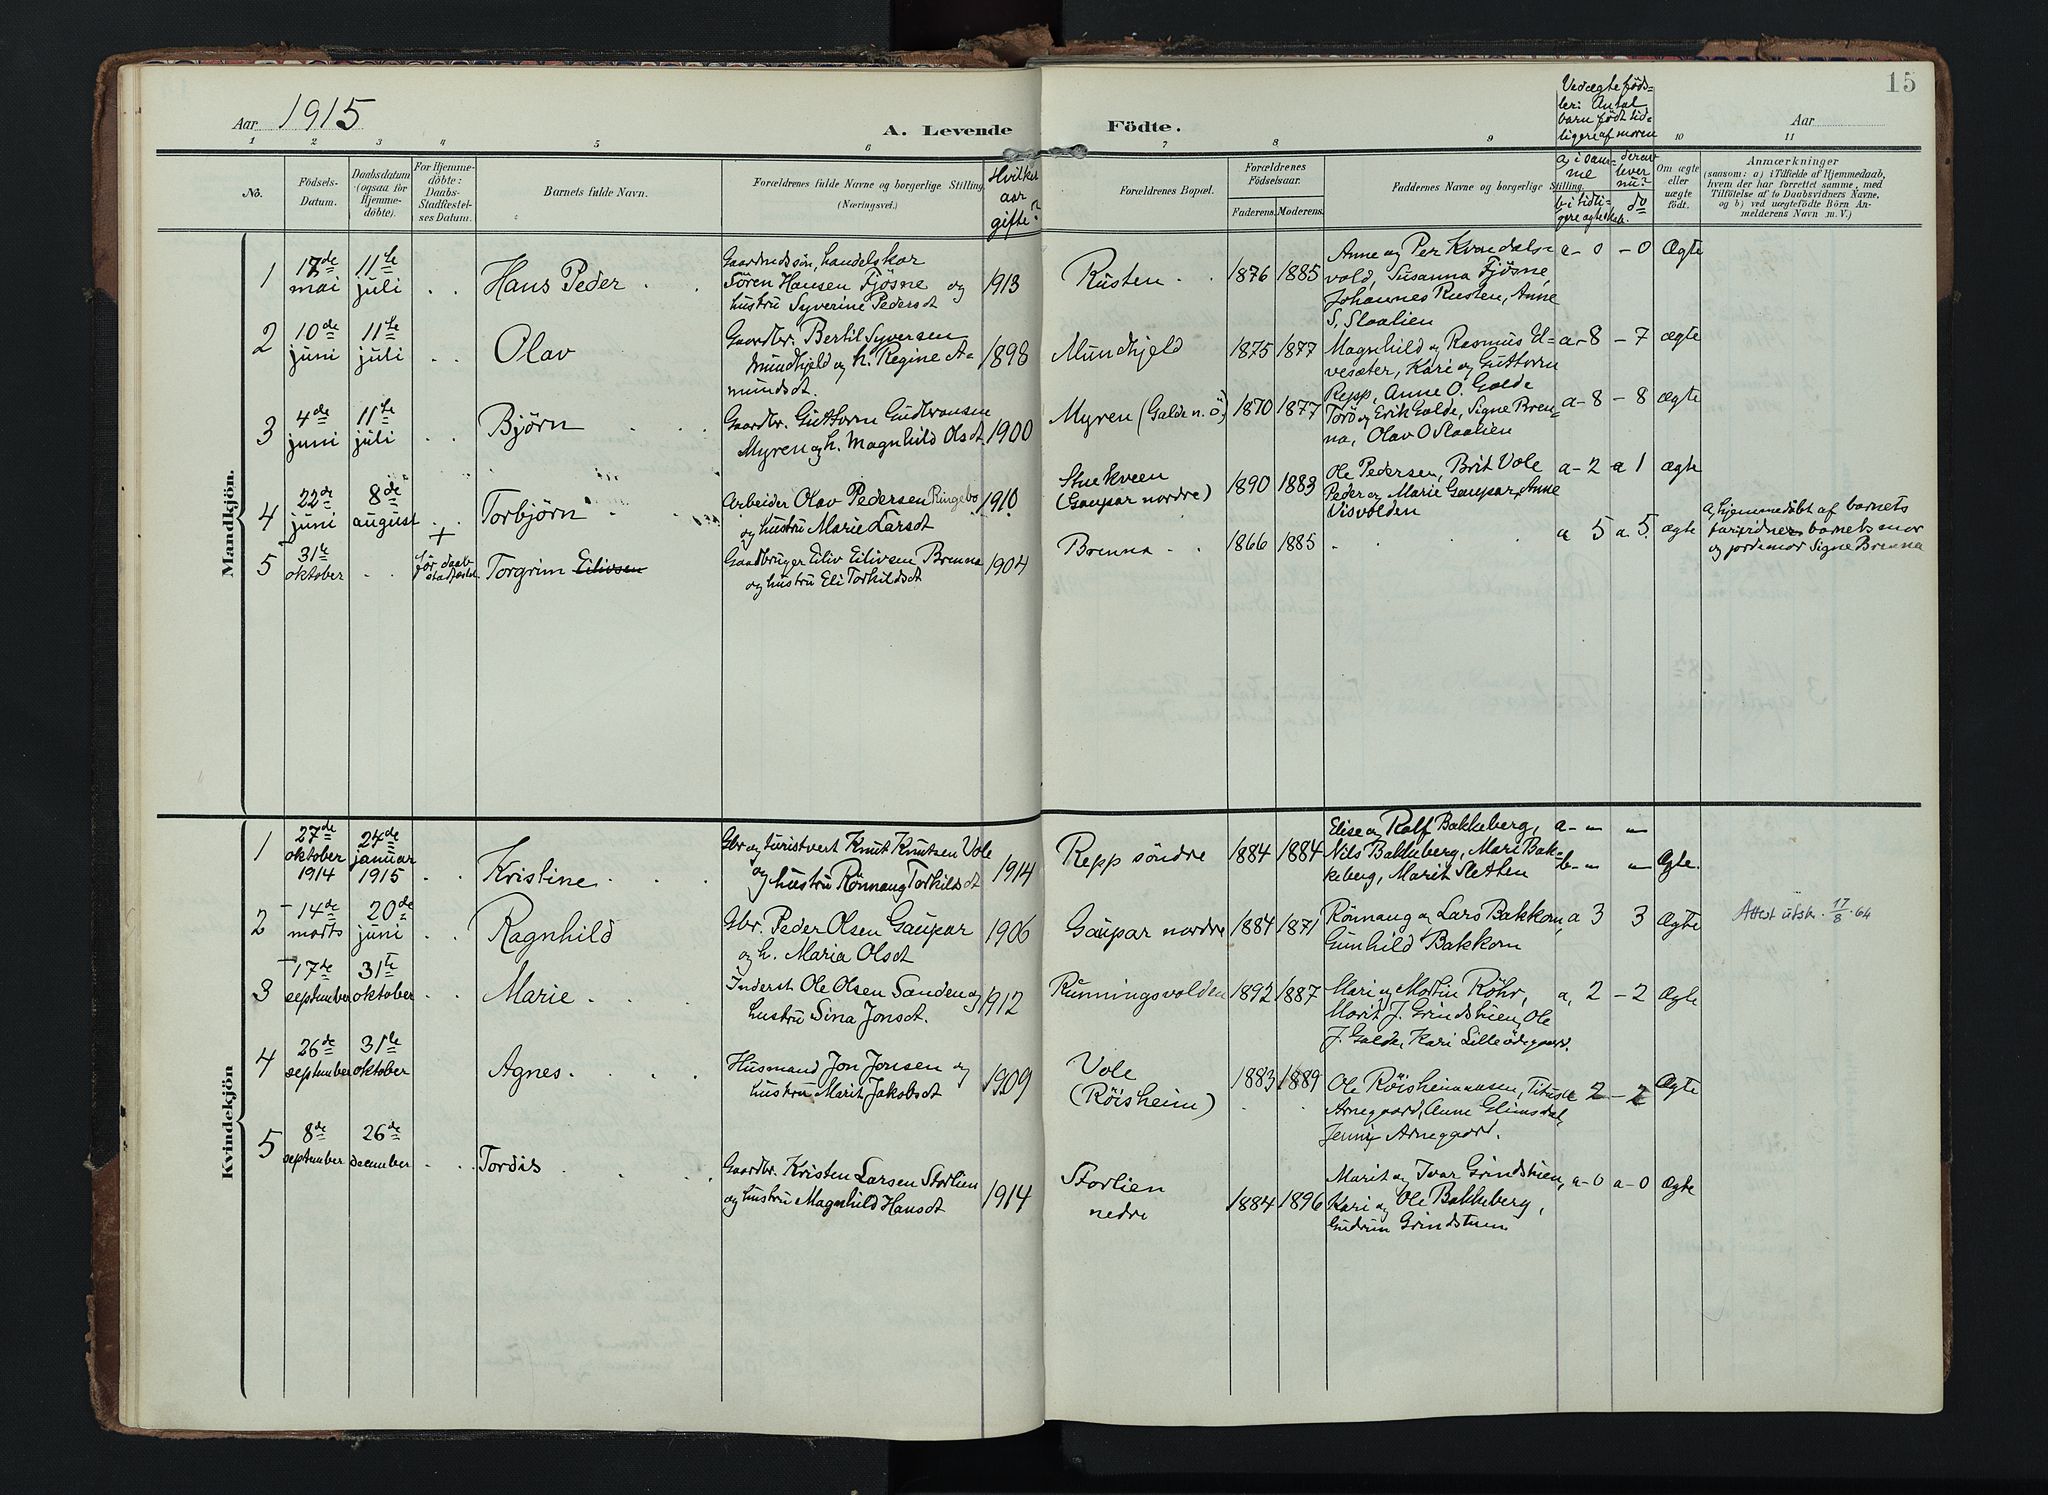 15
Aar 1915
A. Levende Födte.
Aar
Ved ægte føds-
ler: Antal
barn født tid-
ligere af moren
1 2 3 4 5 6 7 8 9 10 11
No.
Födsels-
Datum.
Daabsdatum
(ogsaa for
Hjemme-
döbte).
For Hjemme-
döbte:
Daabs-
Stadfæstel-
ses Datum.
Barnets fulde Navn.
Forældrenes fulde Navne og borgerlige Stilling
(Næringsvei.)
Hvilket
aar
gifte?
Forældrenes Bopæl.
Forældrenes
Födselsaar.
Faderens. Moderens.
Faddernes Navne og borgerlige Stilling.
a, i samme
b, i tidli-
gere ægteskab.
derav
lever
nu?
do
Om ægte
eller
uægte
födt.
Anmærkninger
(saasom: a) i Tilfælde af Hjemmedaab,
hvem der har forrettet samme, med
Tilföielse af to Daabsvidners Navne,
og b) ved uægtefödte Börn An-
melderens Navn m. V.)
Mandkjön.
1 17de mai 11te juli Hans Peder
Gaardmdssøn, handelskar
Sören Hansen Fjøsne og
hustru Syverine Pedersdt
1913 Rusten 1876 1885
Anne og Per Kvandals-
vold, Susanna Fjøsne
Johannes Rusten, Anne
S. Slaalien
a - 0 - 0 Ægte
2 10de juni 11te juli Olav
Gaardbr. Bertil Syversen
Mundhjeld og h. Regine A-
mundsdt.
1898 Mundhjeld 1875 1877
Magnhild og Rasmus El-
vesæter, Kari og Guttorm
Repp, Anne O. Galde
a - 8 - 7 ægte
3 4de juni 11te juli Björn
Gaardbr. Guttorm Gudbransen
Myren og h. Magnhild Olsdt
1900 Myren (Galde n. ö.) 1870 1877
Torø og Erik Galde, Signe Bren-
na, Olav O Slaalien
a - 8 - 8 ægte
4 22de juni 8de august Torbjörn
Arbeider Olav Pedersen Ringebo
og hustru Marie Larsdt
1910 Stuekveen
(Gaupar nordre) 1890 1883
Ole Pedersen, Brit Vole
Peder og Marie Gaupar, Anne
Visvolden
a - 2 a 1 ægte
5 31te oktober + för daab-
stadfæstel. Torgrim Eilivsen
Gaardbruger Eiliv Eilivsen Brenna
og hustru Eli Torkildsdt
1904 Brenna 1866 1885
a 5 a 5 ægte
a, hjemmedöbt af barnets
far, vidner barnets mor
og jordemor Signe Brenna
Kvindekjön
1 27de oktober 1914 24de januar 1915 Kristine
Gbr og turistvert Knut Knutsen Vole
og hustru Rönnaug Torkildsdt
1914 Repp söndre 1884 1884
Elise og Rolf Bakkeberg,
Nils Bakkeberg, Mari Bak-
keberg, Marit Sletten
a - " "
b - " " Ægte.
2 14de marts 20de juni Ragnhild
Gbr. Peder Olsen Gaupar
og h. Maria Olsdt
1906 Gaupar nordre 1884 1871
Rönnaug og Lars Bakkom,
Gunhild Bakkom
a 3 3 Ægte
Attest utskr. 17/8.64
3 17de september 31te oktober Marie
Inderst Ole Olsen Sanden og
hustru Sina Jonsdt.
1912 Runningsvolden 1892 1887
Mari og Martin Röhr,
Marit J. Grindstuen, Ole
J. Galde, Kari Lilleödegaard.
a, 2 - 2 Ægte
4 26de september 31te oktober Agnes
Husmand Jon Jonsen og
hustru Marit Jakobsdt
1909 Vole
(Röisheim) 1883 1889
Ole Röisheimmoen, Titus
Arnegaard, Anne Glimsdal,
Jenny Arnegaard.
2 - 2 Ægte
5 8de september 26de december Tordis
Gaardbr. Kristen Larsen Storlien
og hustru Magnhild Hansdt
1914 Storlien
nedre 1884 1896
Marit og Ivar Grindstuen,
Kari og Ole Bakkeberg,
Gudrun Grindstuen
a - 0 a - 0 Ægte